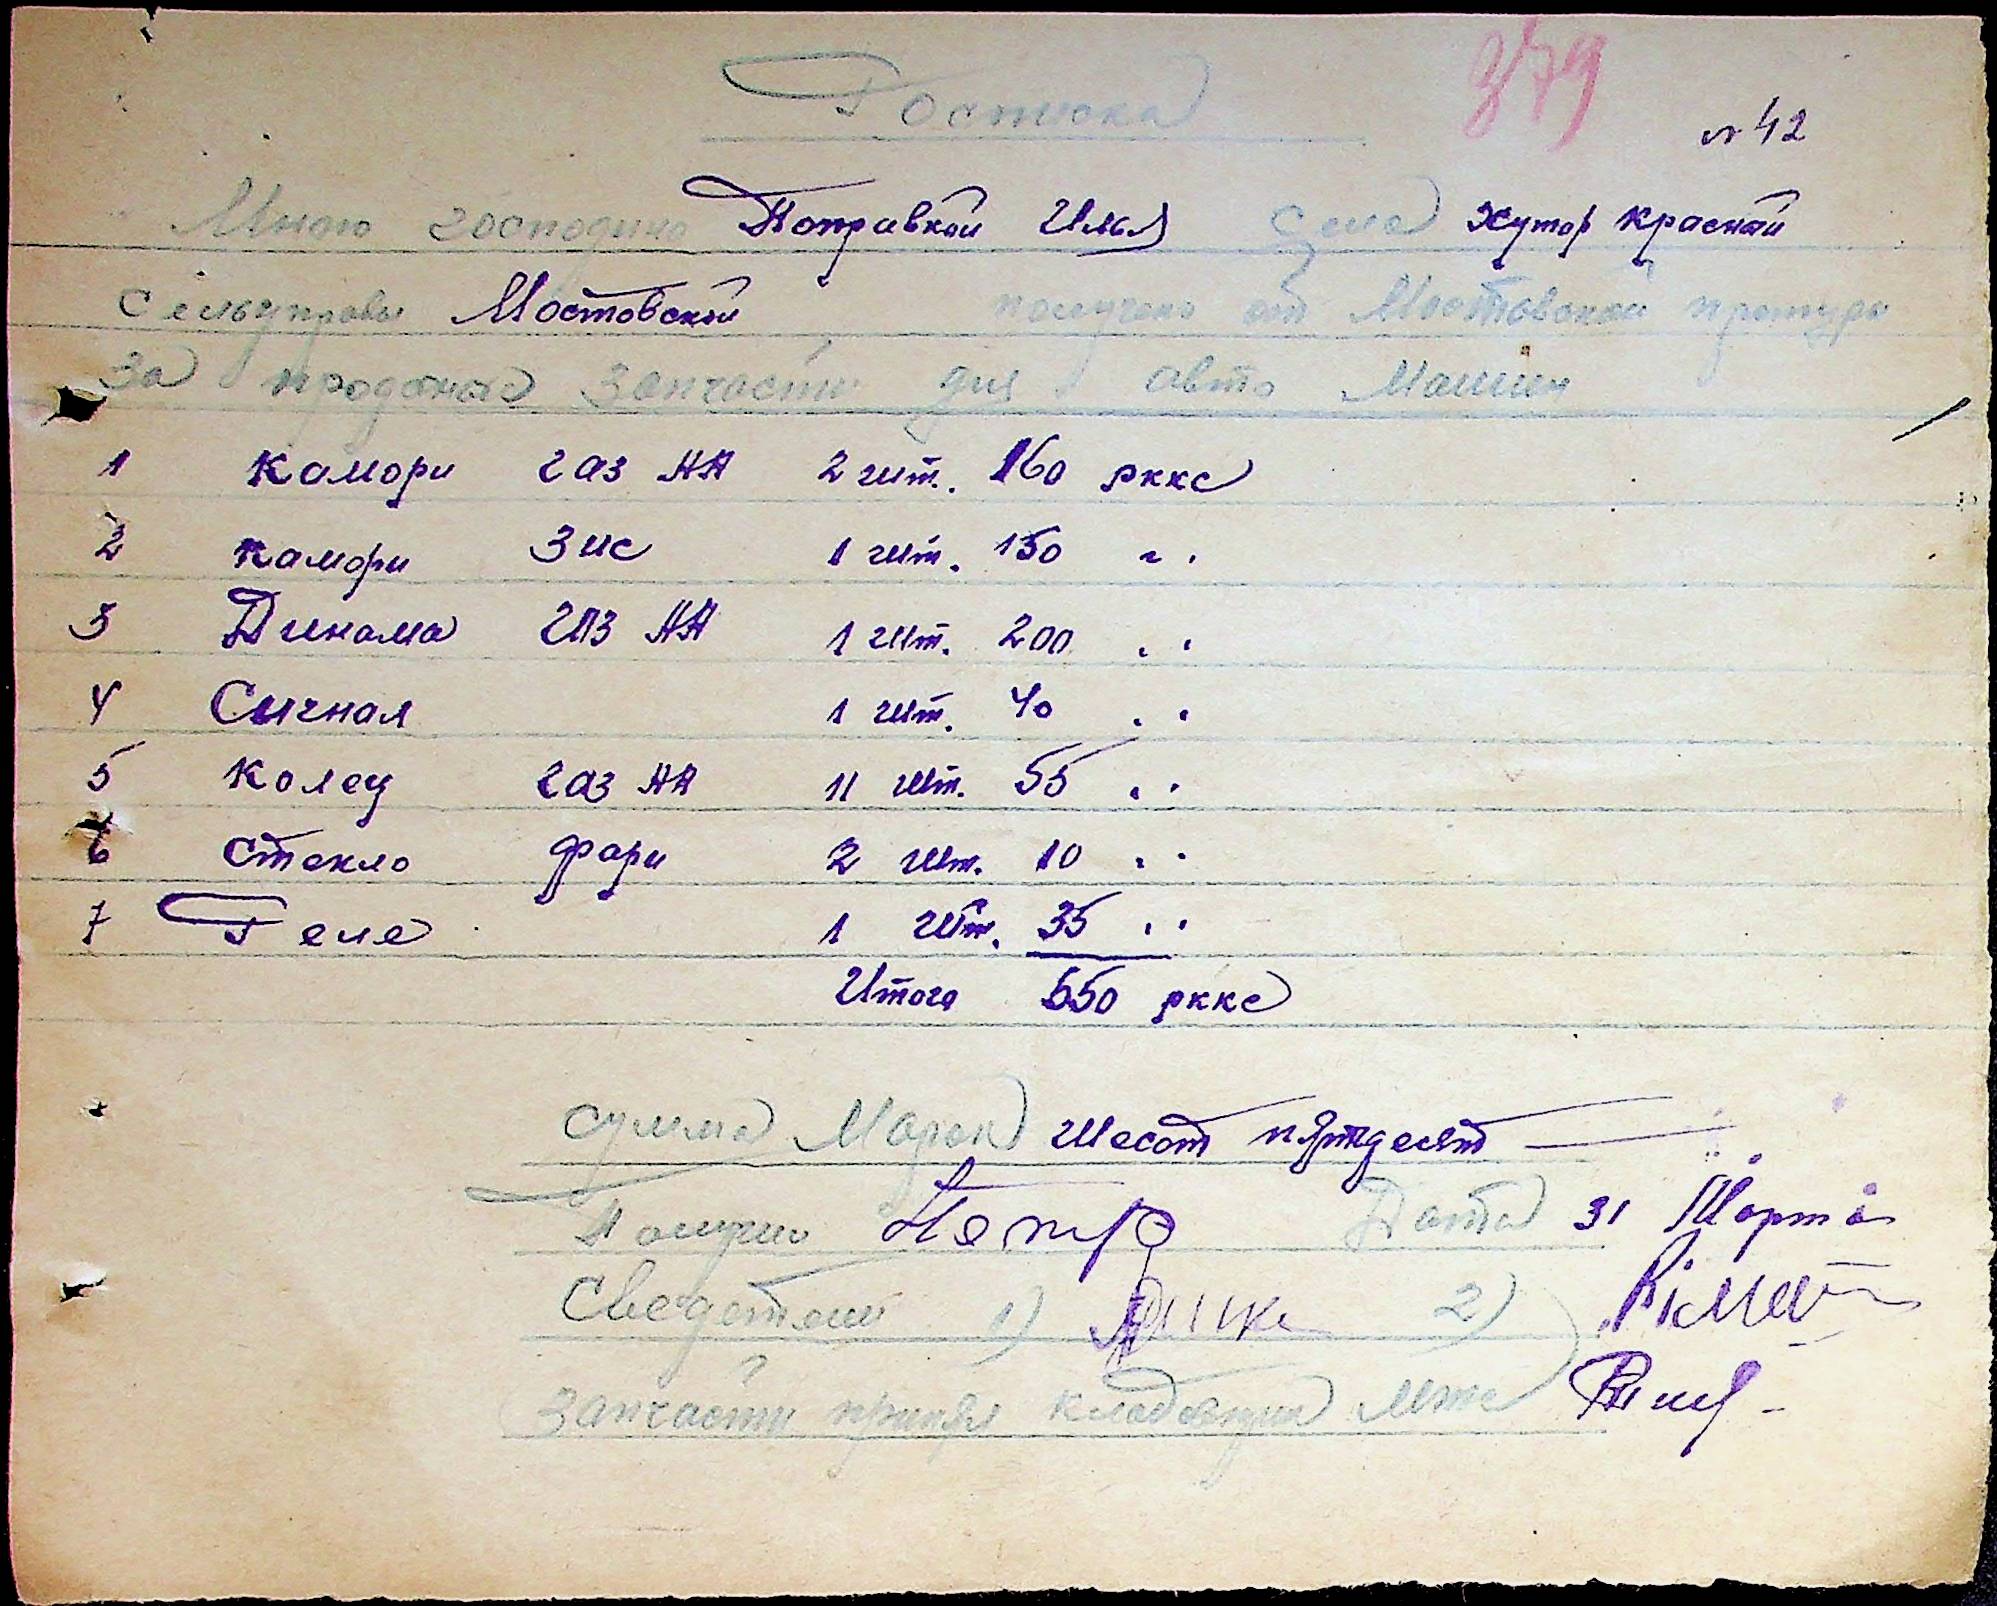 379
Росписка
№ 42
Мною господино Поправкой Илья села хутор Красной
Сельуправы Мостовской получено от Мостовской претуры
За проданые Запчасти для авто Машин
1 Камори газ АА 2 шт. 160 рккс
2 камори Зис 1 шт. 150 " "
3 Динама газ АА 1 шт. 200 " "
4 Сигнал 1 шт. 40 " "
5 Колец газ АА 11 шт. 55 " "
6 Стекло фари 2 шт. 10 " "
7 Реле 1 шт. 35 " "
Итого 650 рккс
Сумма Марок Шесот пятдесят
Получил Дата 31 Марта
Сведетели 1) 2)
Запчасти принял кладовщик Мтс